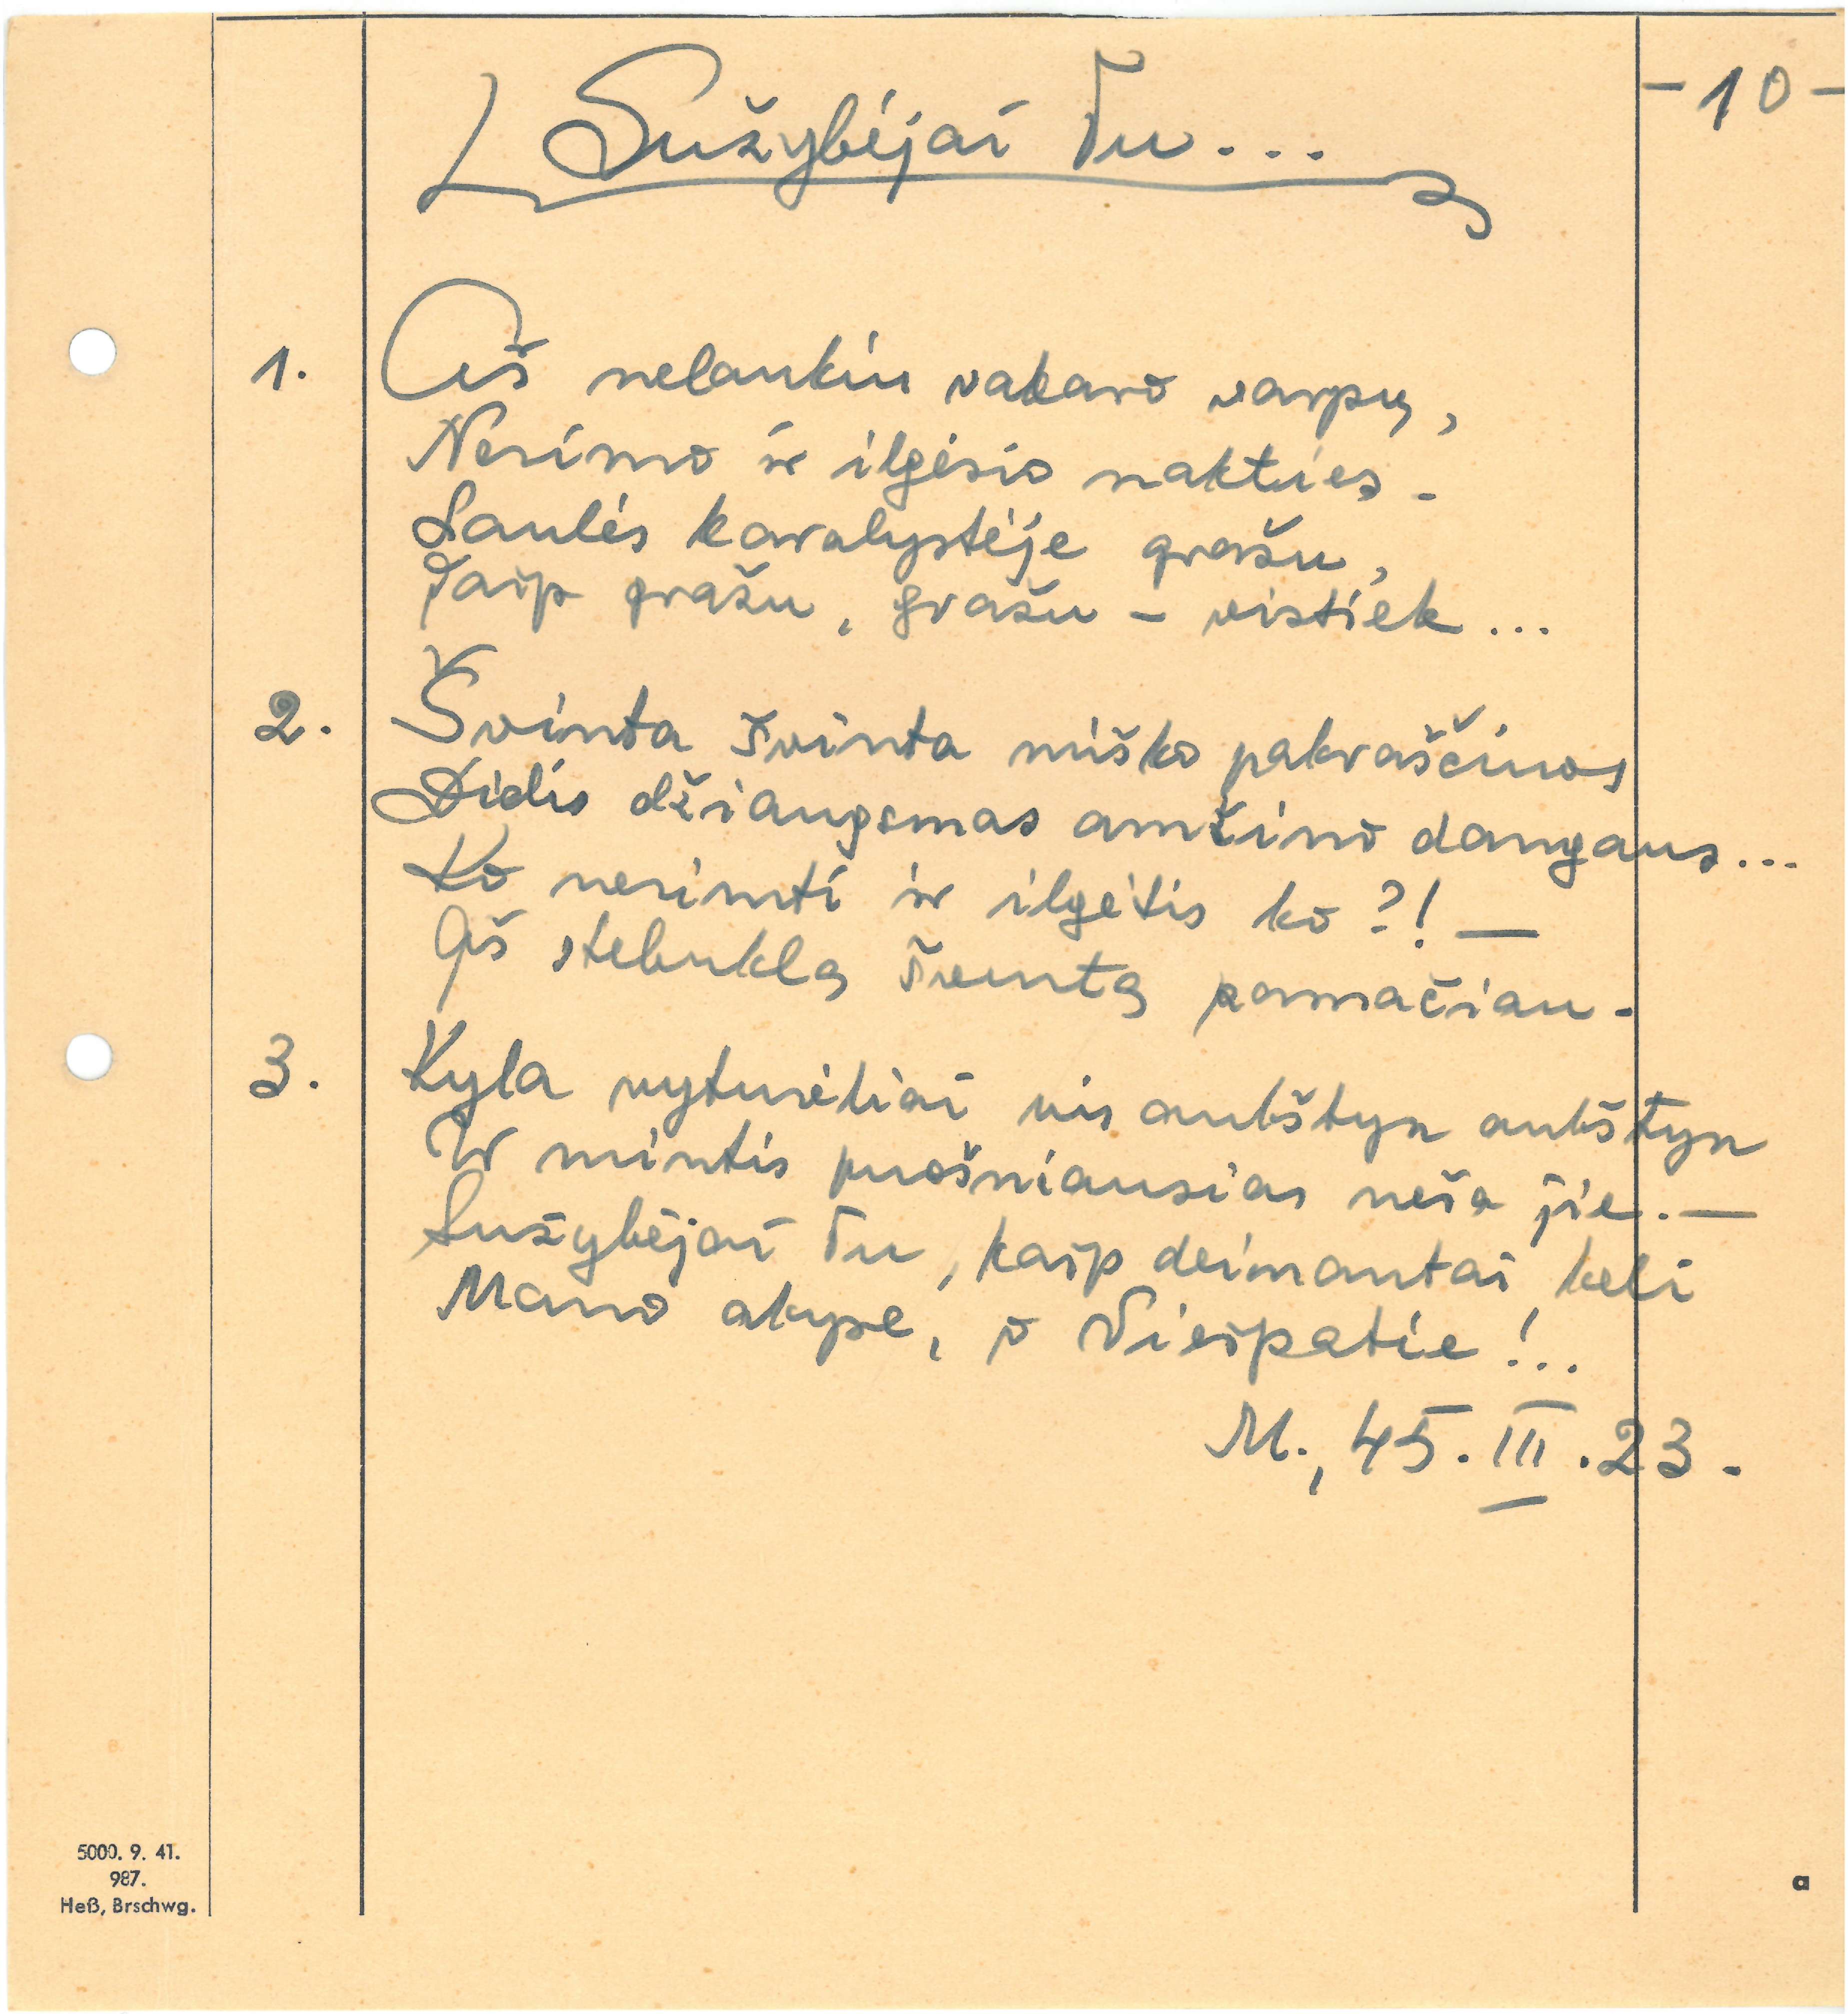 - 10 -
Sužybėjai Tu...
1. Aš nelaukiu vakaro varpų,
Nerimo ir ilgėsio nakties -
Saulės karalystėje gražu,
Taip gražu, gražu - vistiek...
2. Švinta švinta miško pakraščiuos
Didis džiaugsmas amžino dangaus...
Ko nerimti ir ilgėtis ko?! —
Aš stebuklą šventą pamačiau -
3. Kyla vyturėliai vis aukštyn aukštyn
Ir mintis puošniausias neša jie. —
Sužybėjai Tu, kaip deimantai keli
Mano akyse, o Viešpatie!..
M., 45.III.23.
5000. 9. 41.
987.
Heß, Brschwg.
a